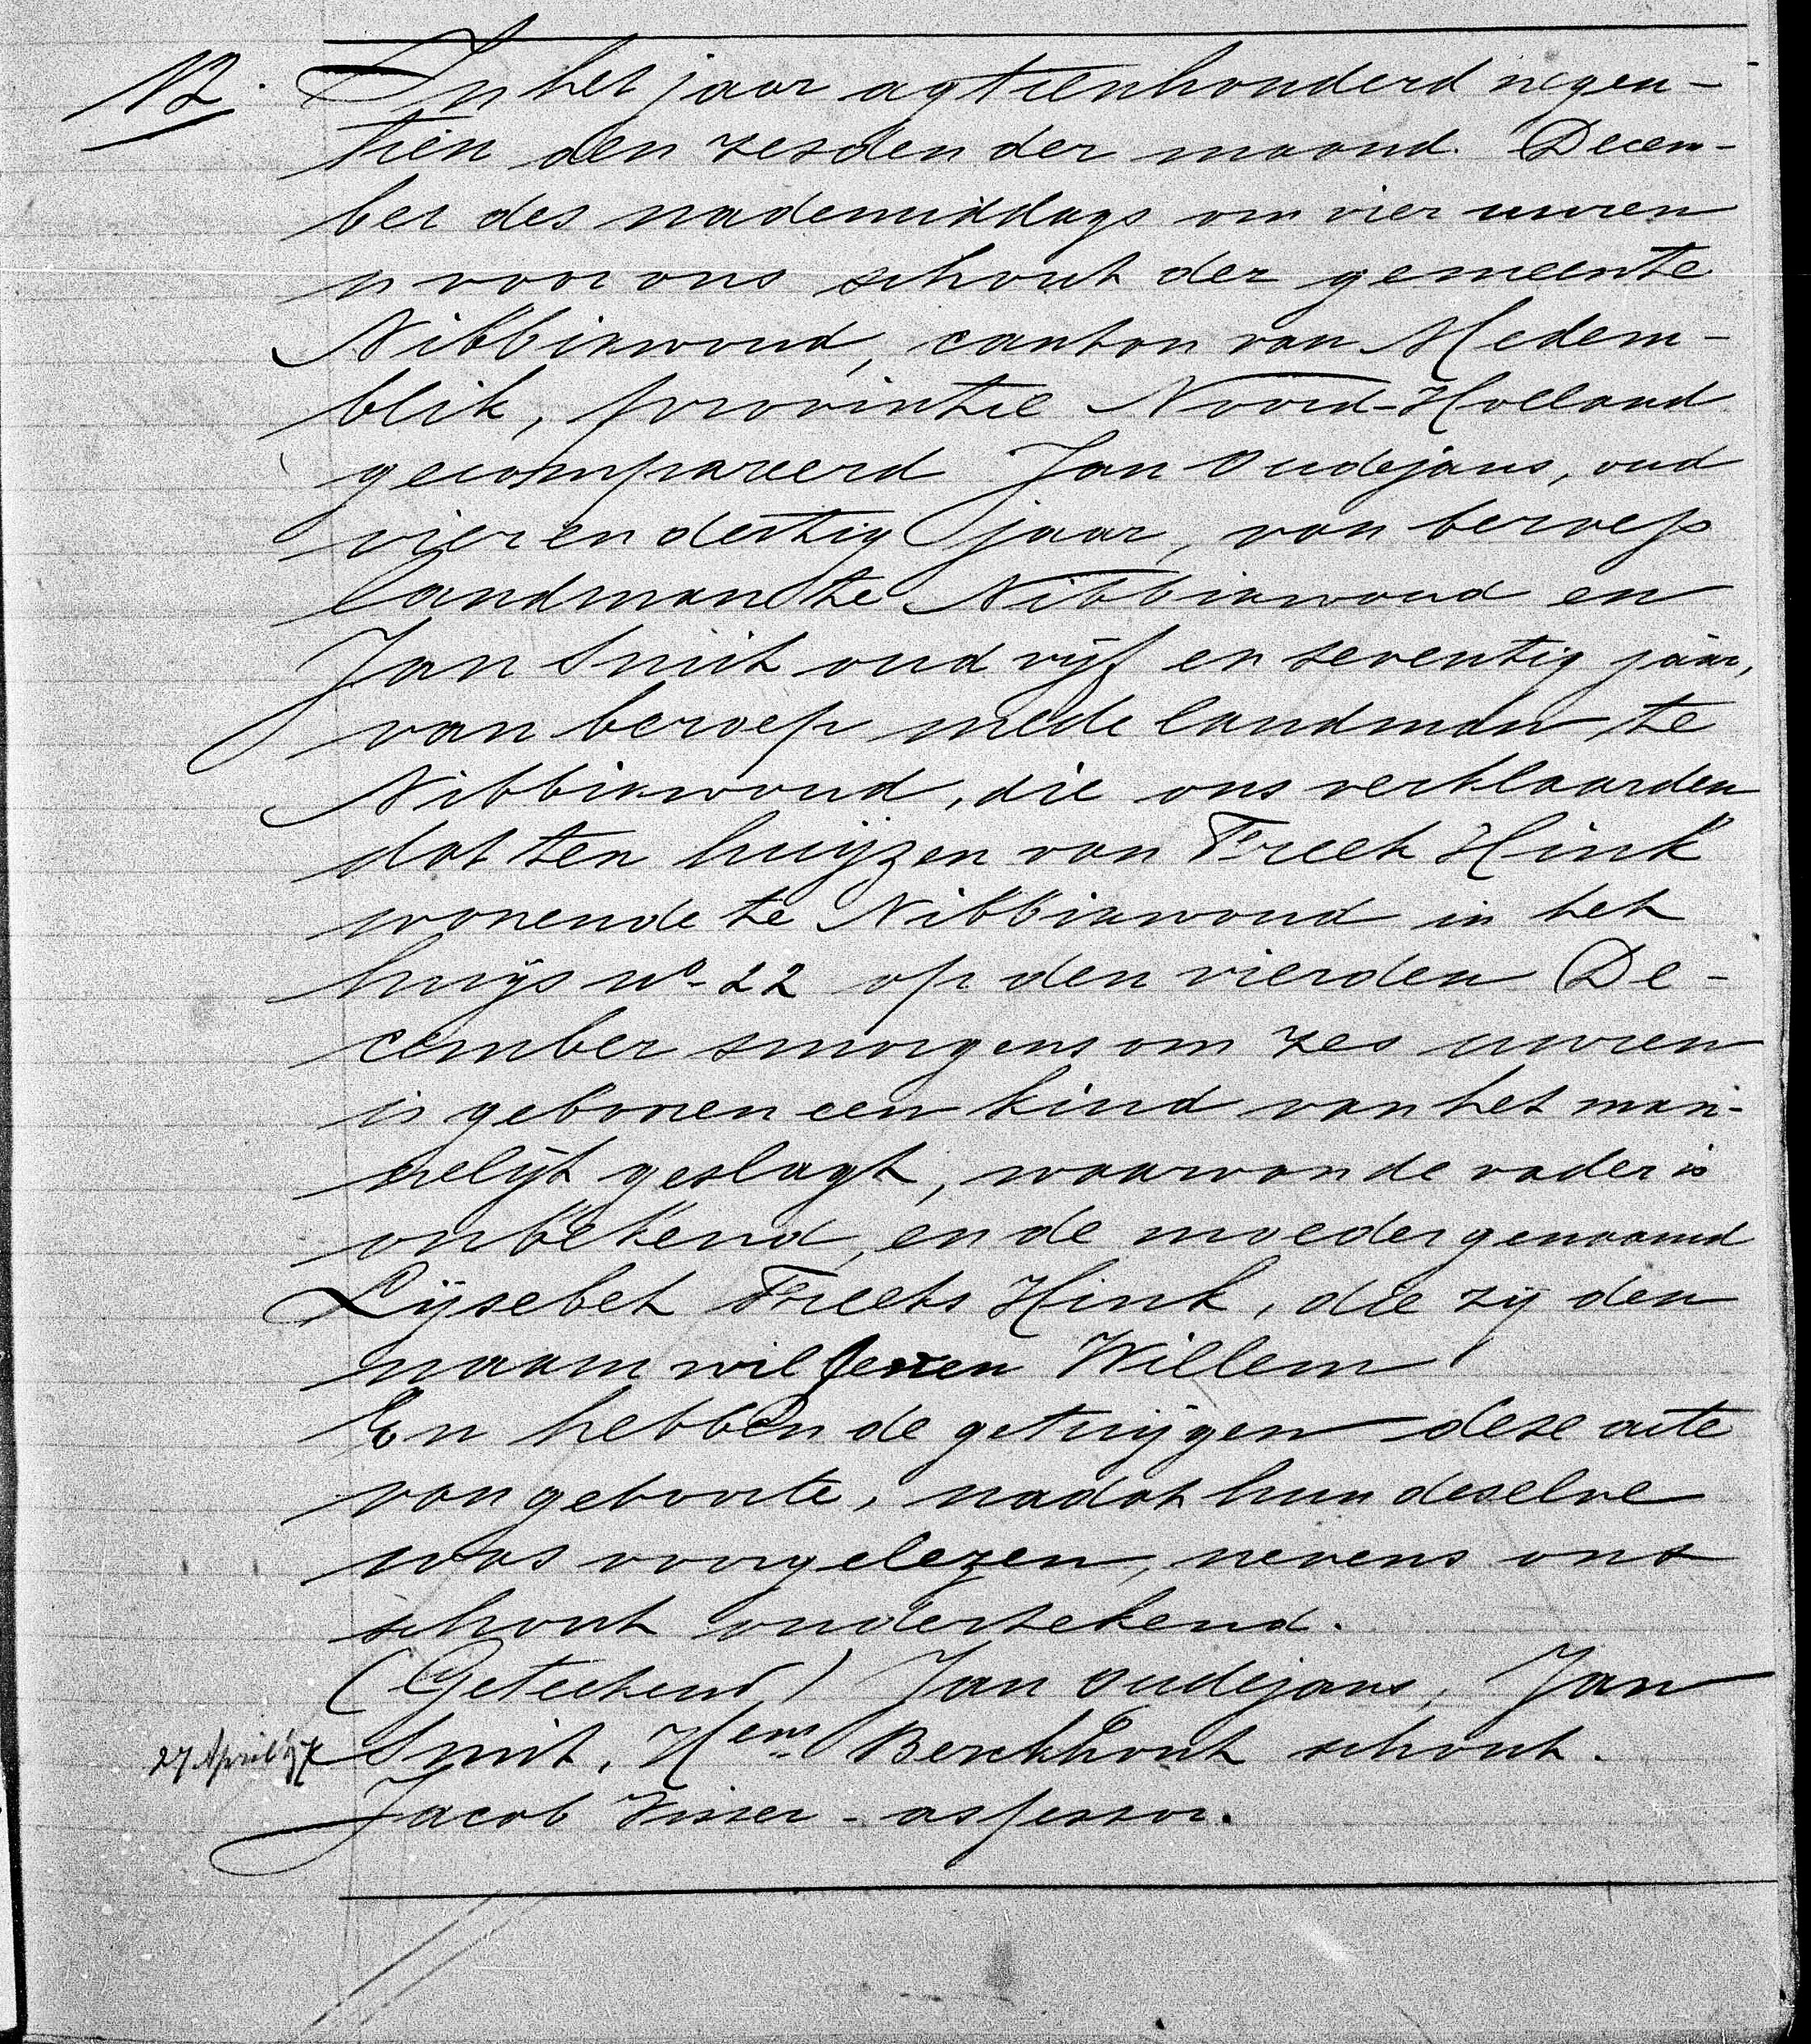 12. In het jaar agtienhonderd negen-
tien den zesden der maand Decem-
ber des nademiddags om vier uuren
is voor ons schout der gemeente
Nibbixwoud, canton van Medem-
blik, provintie Noord-Holland
gecompareerd Jan Oudejans, oud
vier en dertig jaar, van beroep
landman te Nibbixwoud en
Jan Smit oud vijf en seventig jaar,
van beroep mede landman te
Nibbixwoud, die ons verklaarden
dat ten huijzen van Freek Hink
wonende te Nibbixwoud in het
huijs no. 22 op den vierden De-
cember smorgens om zes uuren
is gebooren een kind van het man-
nelijk geslagt, waarvan de vader is
onbekend, en de moeder genaamd
Lijsebet Freeks Hink, die zij den
naam wil geven Willem
En hebben de getuijgen deze acte
van geboorte, nadat hun deselve
was voorgelezen, nevens ons
schout ondertekend.
(Geteekend) Jan Oudejans, Jan
Smit, Hens Berckhout schout.
27 April
Jacob Visser - assessor.